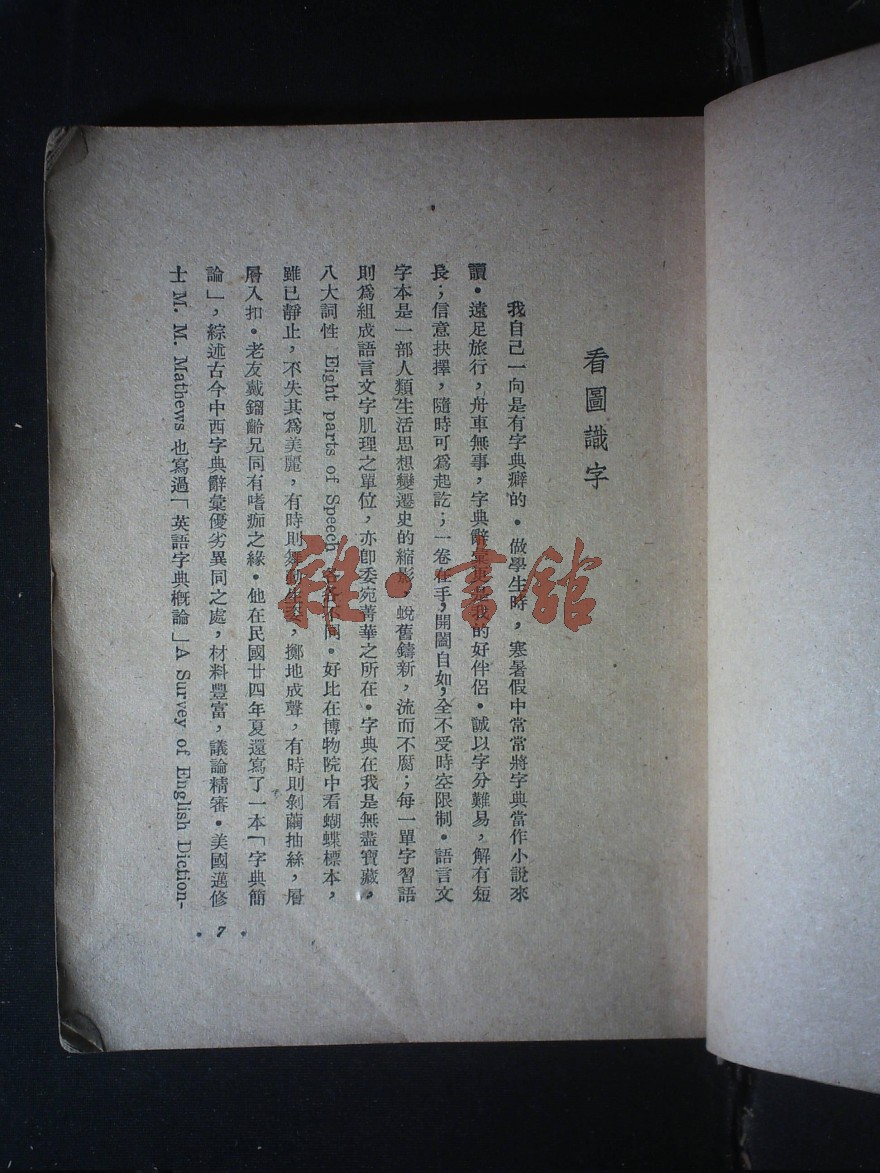 看圖識字
我自己一向是有字典癖的。做學生時，寒暑假中常常將字典當作小說來
讀。遠足旅行，舟車無事，字典辭彙更是我的好伴侶。誠以字分難易，解有短
長；信意抉擇，隨時可爲起訖；一卷在手，開闔自如，全不受時空限制。語言文
字本是一部人類生活思想變遷史的縮影，蛻舊鑄新，流而不腐；每一單字習語
則爲組成語言文字肌理之單位，亦卽委宛菁華之所在。字典在我是無盡寶藏，
八大詞性 Eight parts of Speech 各各不同。好比在博物院中看蝴蝶標本，
雖已靜止，不失其爲美麗，有時則舞動生姿，擲地成聲，有時則剝繭抽絲，層
層入扣。老友戴鎦齡兄同有嗜痂之緣。他在民國廿四年夏還寫了一本「字典簡
論」，綜述古今中西字典辭彙優劣異同之處，材料豐富，議論精審。美國邁修
士 M. M. Mathews 也寫過「英語字典概論」A Survey of English Diction-
• 7 •
雜·書館